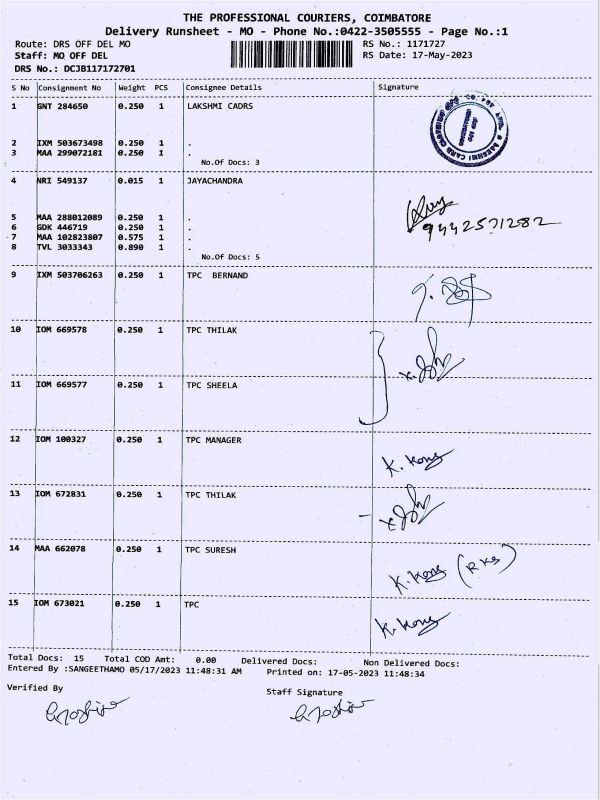 THE PROFESSIONAL COURIERS, COIMBATORE
Delivery Runsheet - MO - Phone No.:0422-3505555 - Page No.:1
Route: DRS OFF DEL MO RS No.: 1171727
Staff: MO OFF DEL RS Date: 17-May-2023
DRS No.: DCJB117172701
S No Consignment No Weight PCS Consignee Details Signature
1 GNT 284650 0.250 1 LAKSHMI CADRS
2 IXM 503673498 0.250 1 .
3 MAA 299072181 0.250 1 .
No.Of Docs: 3
4 NRI 549137 0.015 1 JAYACHANDRA
9442571282
5 MAA 288012089 0.250 1 .
6 GDK 446719 0.250 1 .
7 MAA 102823807 0.575 1 .
8 TVL 3033343 0.890 1 .
No.Of Docs: 5
9 IXM 503706263 0.250 1 TPC BERNAND
10 IOM 669578 0.250 1 TPC THILAK
11 IOM 669577 0.250 1 TPC SHEELA
12 IOM 100327 0.250 1 TPC MANAGER
13 IOM 672831 0.250 1 TPC THILAK
14 MAA 662078 0.250 1 TPC SURESH
15 IOM 673021 0.250 1 TPC
Total Docs: 15 Total COD Amt: 0.00 Delivered Docs: Non Delivered Docs:
Entered By :SANGEETHAMO 05/17/2023 11:48:31 AM Printed on: 17-05-2023 11:48:34
Verified By Staff Signature